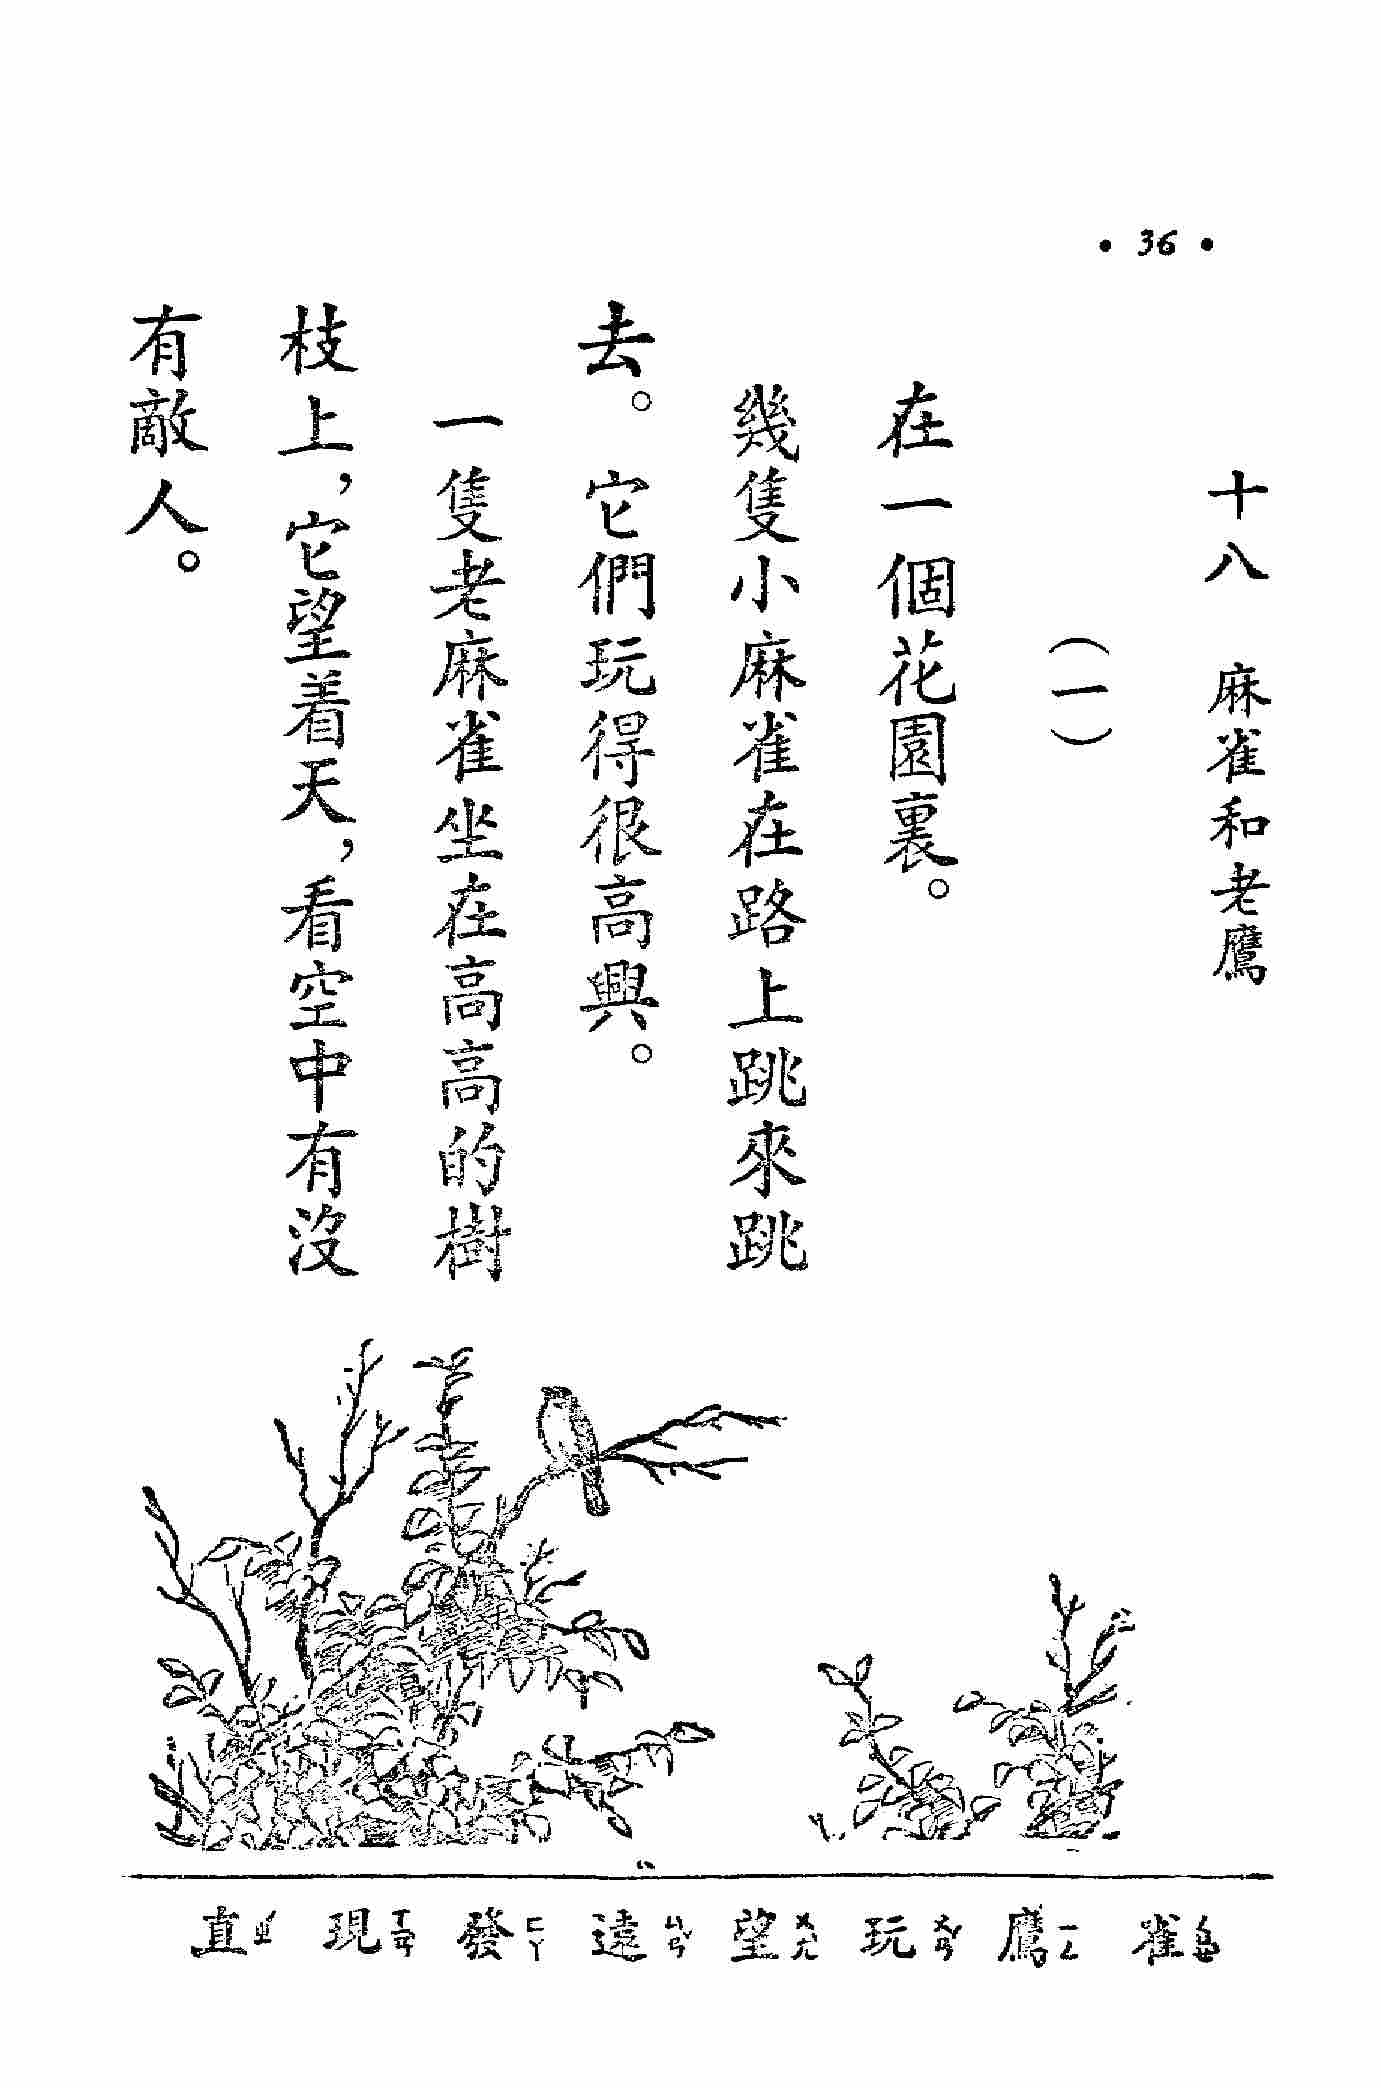 • 36 •
十八　麻雀和老鷹
（一）
在一個花園裏。
幾隻小麻雀在路上跳來跳
去。它們玩得很高興。
一隻老麻雀坐在高高的樹
枝上，它望着天，看空中有沒
有敵人。
雀 鷹ㄧㄥ 玩ㄨㄢˊ 望ㄨㄤˋ 遠ㄩㄢˇ 發ㄈㄚ 現ㄒㄧㄢˋ 直ㄓˊ